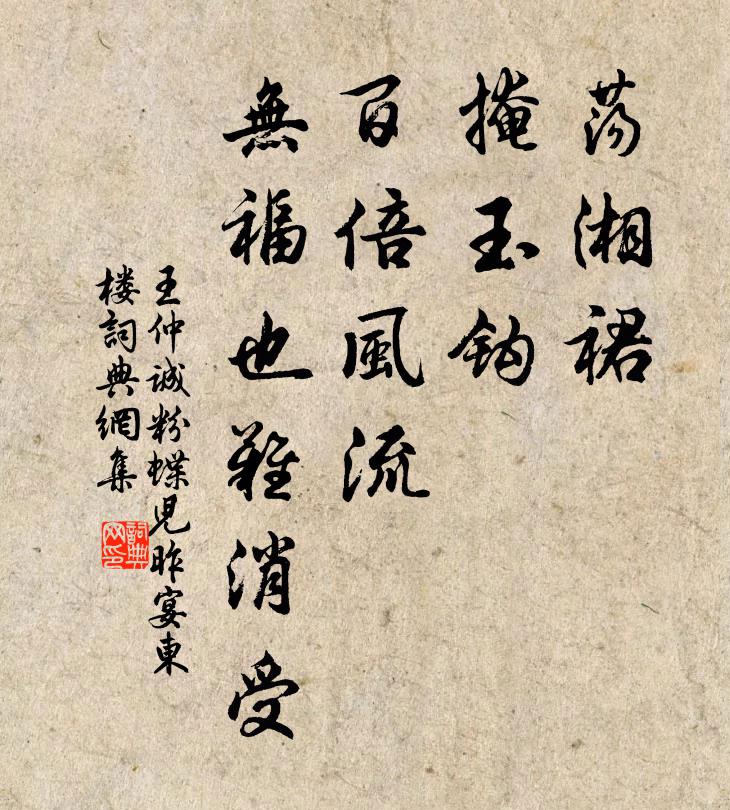 荡湘裙
掩玉鈎
百倍風流
無福也難消受
王仲诚粉蝶児昨宴東
楼詞典網集
詞典
网印